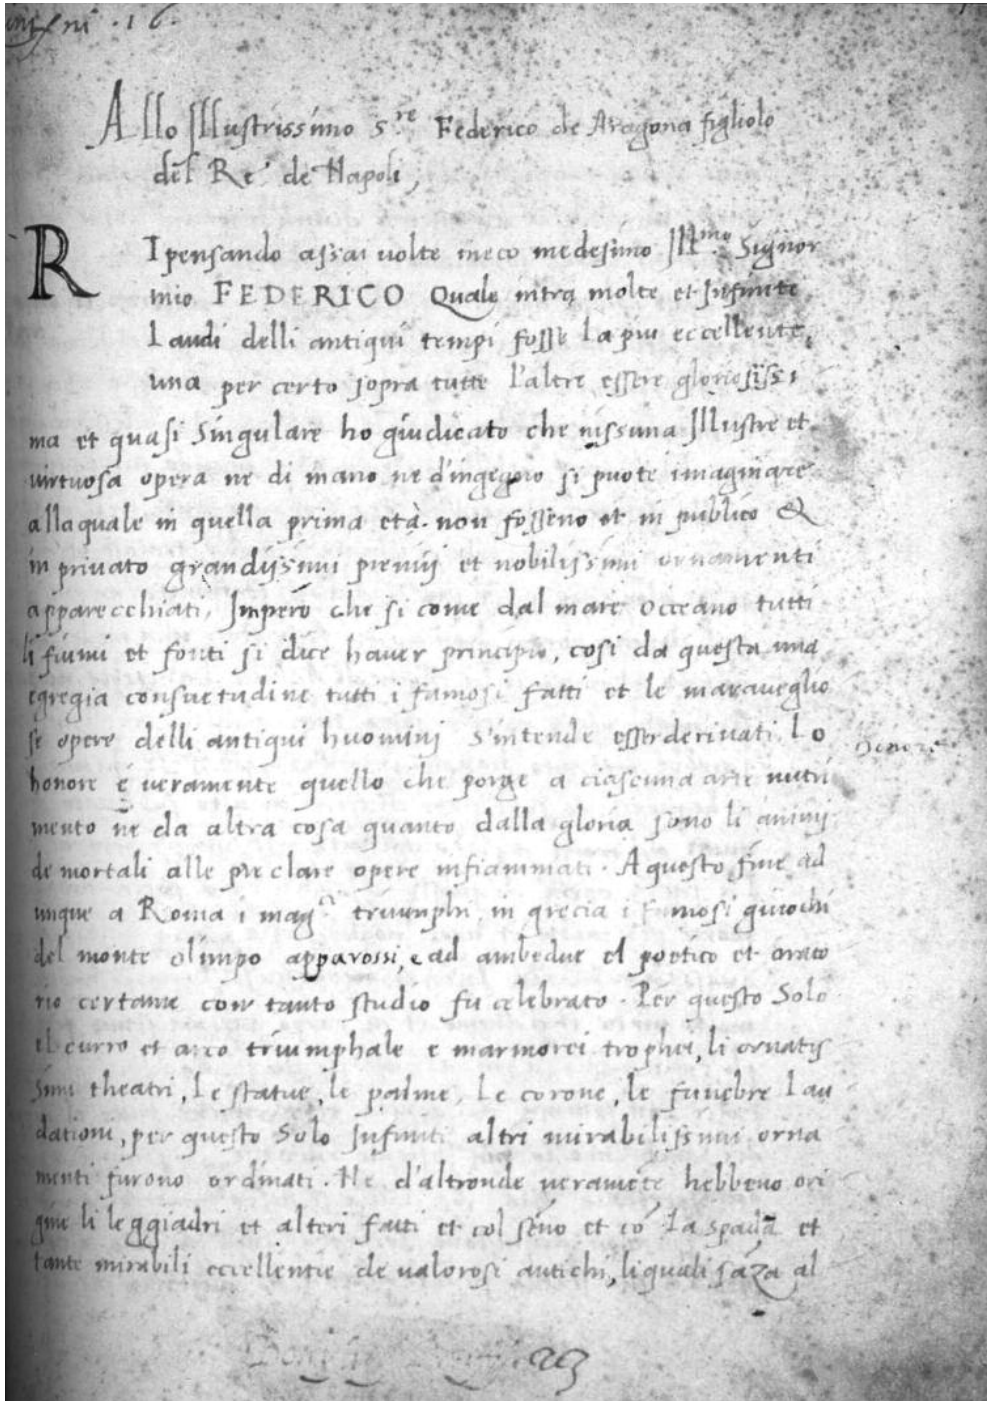 ni 16.
Allo Illustrissimo S.re Federico de Aragona figliolo
del Re de Napoli,
RIpensando assai volte meco medesimo Ill.mo Signor
mio FEDERICO Quale intra molte et Infinite
Laudi delli antiqui tempi fosse la piu eccellente,
una per certo sopra tutte l'altre essere gloriosissi
ma et quasi Singulare ho giudicato che nissuna Illustre et
virtuosa opera ne di mano ne d'ingegno si puote imaginare
alla quale in quella prima età. non fosseno et in publico &
in privato grandissimi premij et nobilissimi ornamenti
apparecchiati, Imperò che si come dal mare Occeano tutti
li fiumi et fonti si dice haver principio, cosi da questa una
egregia consuetudine tutti i famosi fatti et le maraveglio
se opere delli antiqui huomini s'intende esser derivati. Lo
honore è veramente quello che porge a ciascuna arte nutri
mento ne da altra cosa quanto dalla gloria sono li animj
de mortali alle preclare opere infiammati. A questo fine ad
unque a Roma i mag.ci triumphi, in grecia i famosi giuochi
del monte olimpo apparossi, e ad ambedue el poetico et orato
rio certame con tanto studio fu celebrato. Per questo Solo
el curro et arco triumphale e marmorei trophei, li ornatis
simi theatri, Le statue, le palme, Le corone, le funebre Lau
dationi, per questo Solo Infiniti altri mirabilissimi orna
menti furono ordinati. Ne d'altronde veramẽte hebbeno ori
gine li leggiadri et alteri fatti et col sẽno et cõ la spada et
tante mirabili eccellentie de valorosi antichi, li quali sãza al